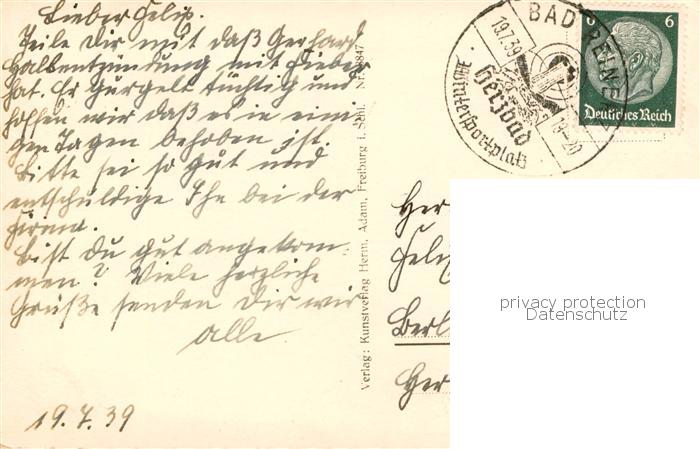 Lieber Felix.
Teile Dir mit daß Gerhard
Halsentzündung mit Fieber
hat. Er gurgelt tüchtig und
hoffen wir daß es in eini-
gen Tagen behoben ist.
Bitte sei so gut und
entschuldige Ihn bei der
Firma.
Bist Du gut angekom
men? Viele herzliche
Grüße senden Dir wir
alle.
19.7.39
Verlag: Kunstverlag Herm. Adam, Freiburg i. Schl. Nr.
BAD REINERZ
19.7.39
Herzbad
Wintersportplatz
6 6
Deutsches Reich
Her
Felix
Berl
Her
privacy protection
Datenschutz